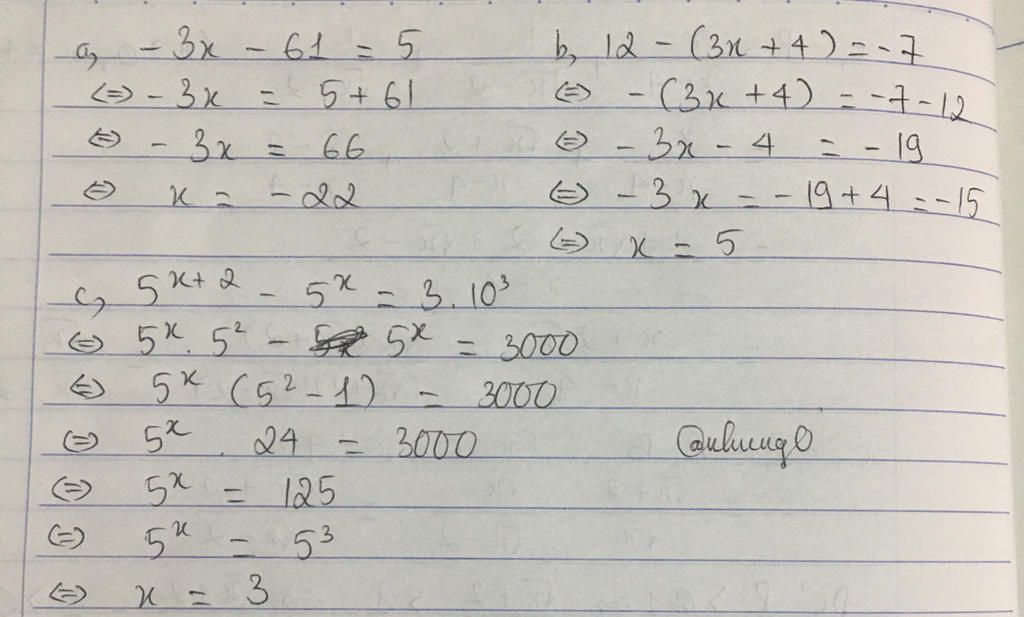 a, - 3x - 61 = 5
<=> - 3x = 5 + 61
<=> - 3x = 66
<=> x = - 22
b, 12 - (3x + 4) = - 7
<=> - (3x + 4) = - 7 - 12
<=> - 3x - 4 = - 19
<=> - 3x = - 19 + 4 = - 15
<=> x = 5
c, 5^(x+2) - 5^x = 3.10³
<=> 5^x. 5² - 5^x = 3000
<=> 5^x (5² - 1) = 3000
<=> 5^x . 24 = 3000
<=> 5^x = 125
<=> 5^x = 5³
<=> x = 3